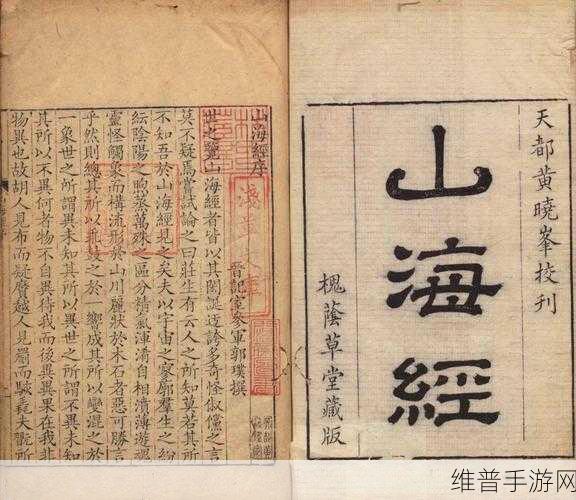 天都黃曉峯挍刊
山海經
槐蔭草堂藏版
山海經序
晉記室參軍郭璞撰
世之覽山海經者皆以其閎誕迂誇多奇怪俶儻之言
莫不疑焉嘗試論之曰莊生有云人之所知莫若其所
不知吾於山海經見之矣夫以宇宙之寥廓羣生之紛
紜陰陽之煦蒸萬殊之區分精氣渾淆自相濆薄遊魂
靈怪觸象而構流形於山川麗狀於木石者惡可勝言
乎然則總其所以乖鼓之於一響成其所以變混之於
一象世之所謂異未知其所以異世之所謂不異未知
其所以不異何者物不自異待我而後異異果在我非
物異也故胡人見布而疑黂越人見罽而駭毳夫翫所
维普手游网